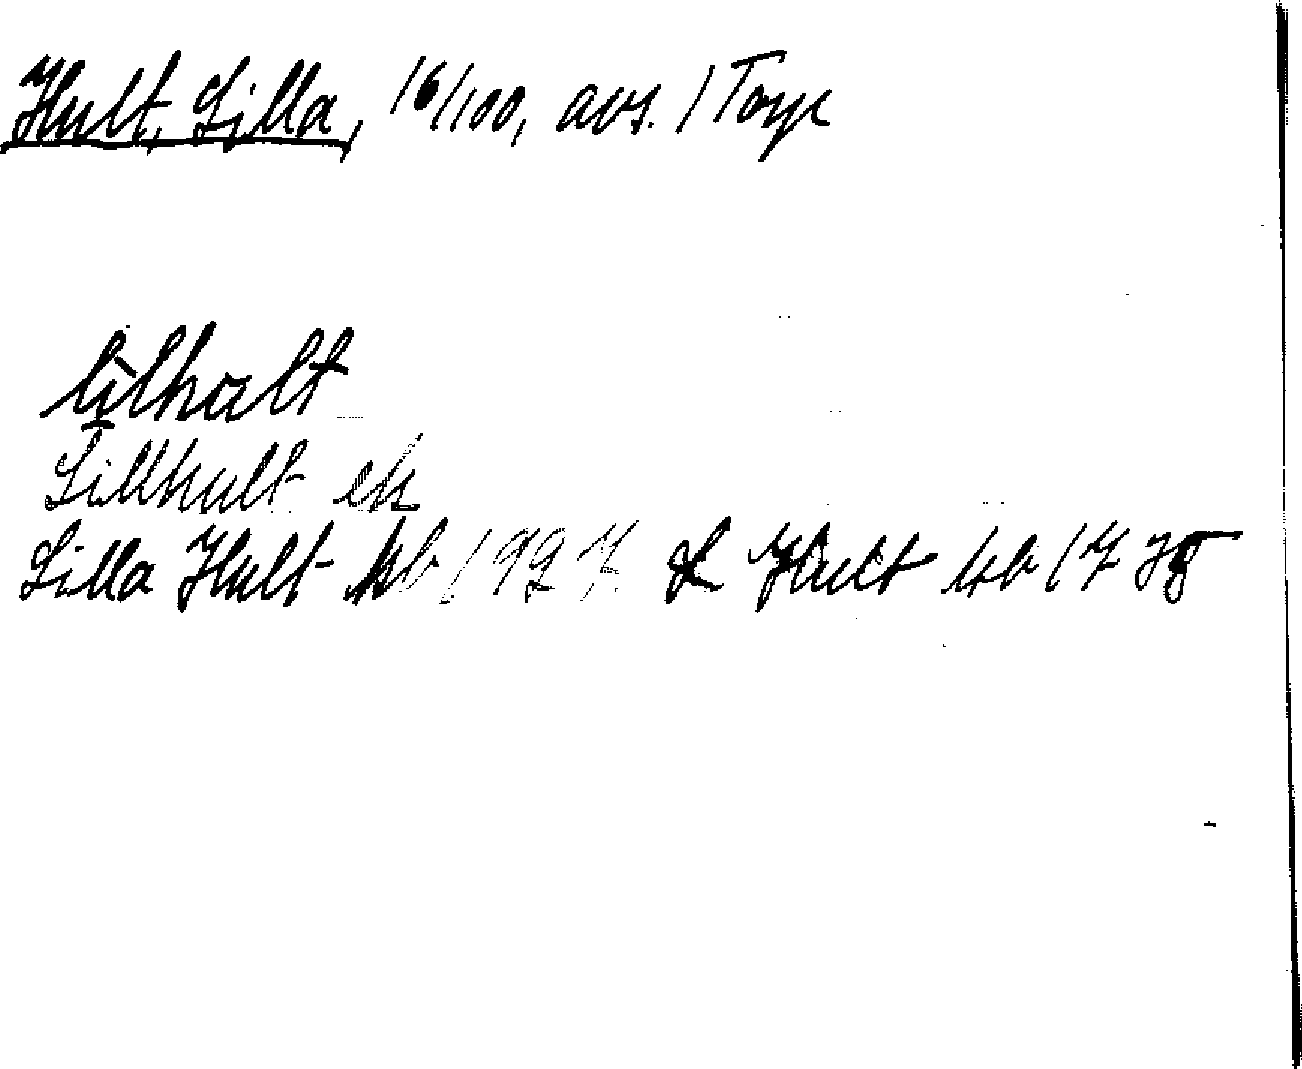 Hult, Lilla, 16/100, avs. 1 Torp
lilhult
Lillhult ek
Lilla Hult kb 1927. L Hult kb 1735